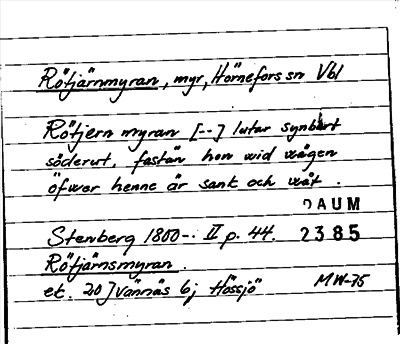 Rötjärnmyran, myr, Hörnefors sn Vbl
Rötjern myran [--] lutar synbart
söderut, fastän hon wid wägen
öfwer henne är sank och wåt.
DAUM
Stenberg 1800-: II p. 44. 2385
Rötjärnsmyran.
ek. 20 J Vännäs 6j Hössjö MW-75